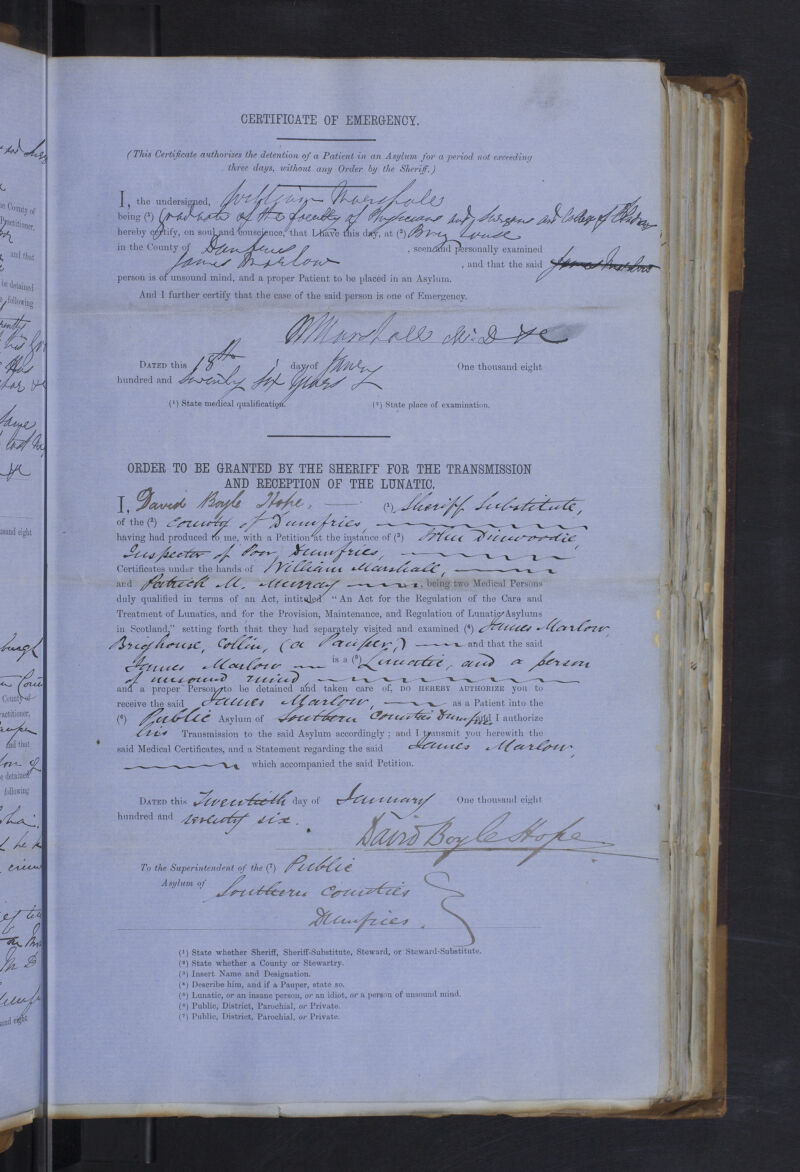 CERTIFICATE OF EMERGENCY.
(This Certificate authorizes the detention of a Patient in an Asylum for a period not exceeding
three days, without any Order by the Sheriff.)
I, the undersigned, William Marshall
being (1) Graduate of the Faculty of Physicians and Surgeons and College of
hereby certify, on soul and conscience, that I have this day, at (2) Brig house
in the County of Dumfries, seen and personally examined
James Marlow, and that the said James Marlow
person is of unsound mind, and a proper Patient to be placed in an Asylum.
And I further certify that the case of the said person is one of Emergency.
W Marshall M.D &c
DATED this 18th day of Jany One thousand eight
hundred and Seventy Six years
(1) State medical qualification. (2) State place of examination.
ORDER TO BE GRANTED BY THE SHERIFF FOR THE TRANSMISSION
AND RECEPTION OF THE LUNATIC.
I, David Boyle Hope, (1) Sheriff Substitute,
of the (2) County of Dumfries,
having had produced to me, with a Petition at the instance of (3) John Dinwoodie,
Inspector of Poor, Dumfries,
Certificates under the hands of William Marshall,
and Patrick M. Murray, being two Medical Persons
duly qualified in terms of an Act, intituled "An Act for the Regulation of the Care and
Treatment of Lunatics, and for the Provision, Maintenance, and Regulation of Lunatic Asylums
in Scotland," setting forth that they had separately visited and examined (4) James Marlow,
Brighouse, Collin, (a Pauper,) and that the said
James Marlow is a (5) Lunatic, and a person
of unsound mind,
and a proper Person to be detained and taken care of, DO HEREBY AUTHORIZE you to
receive the said James Marlow, as a Patient into the
(6) Public Asylum of Southern Counties Dumfries and I authorize
his Transmission to the said Asylum accordingly; and I transmit you herewith the
said Medical Certificates, and a Statement regarding the said James Marlow,
which accompanied the said Petition.
DATED this Twentieth day of January One thousand eight
hundred and seventy six.
David Boyle Hope
To the Superintendent of the (7) Public
Asylum of Southern Counties
Dumfries.
(1) State whether Sheriff, Sheriff-Substitute, Steward, or Steward-Substitute.
(2) State whether a County or Stewartry.
(3) Insert Name and Designation.
(4) Describe him, and if a Pauper, state so.
(5) Lunatic, or an insane person, or an idiot, or a person of unsound mind.
(6) Public, District, Parochial, or Private.
(7) Public, District, Parochial, or Private.